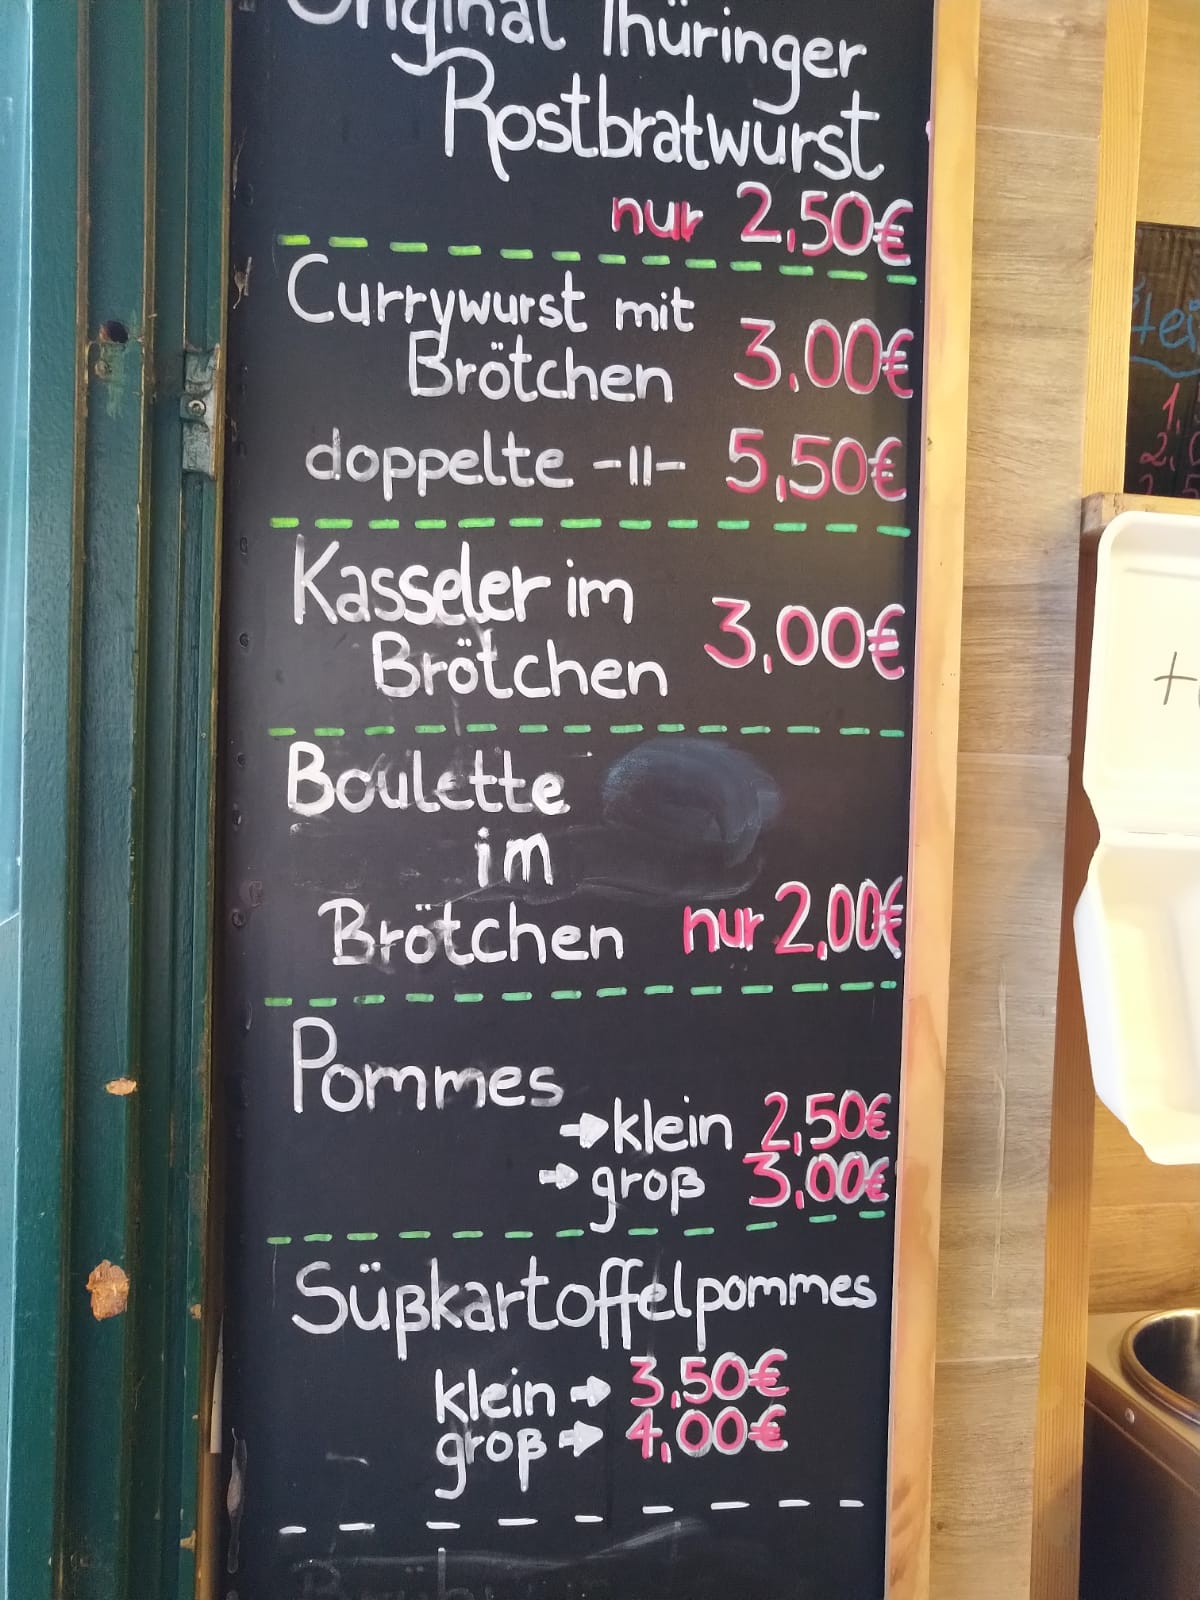 Original Thüringer
Rostbratwurst
nur 2,50€
Currywurst mit
Brötchen 3,00€
doppelte -II- 5,50€
Kasseler im
Brötchen 3,00€
Boulette
im
Brötchen nur 2,00€
Pommes
→klein 2,50€
→groß 3,00€
Süßkartoffelpommes
klein → 3,50€
groß → 4,00€